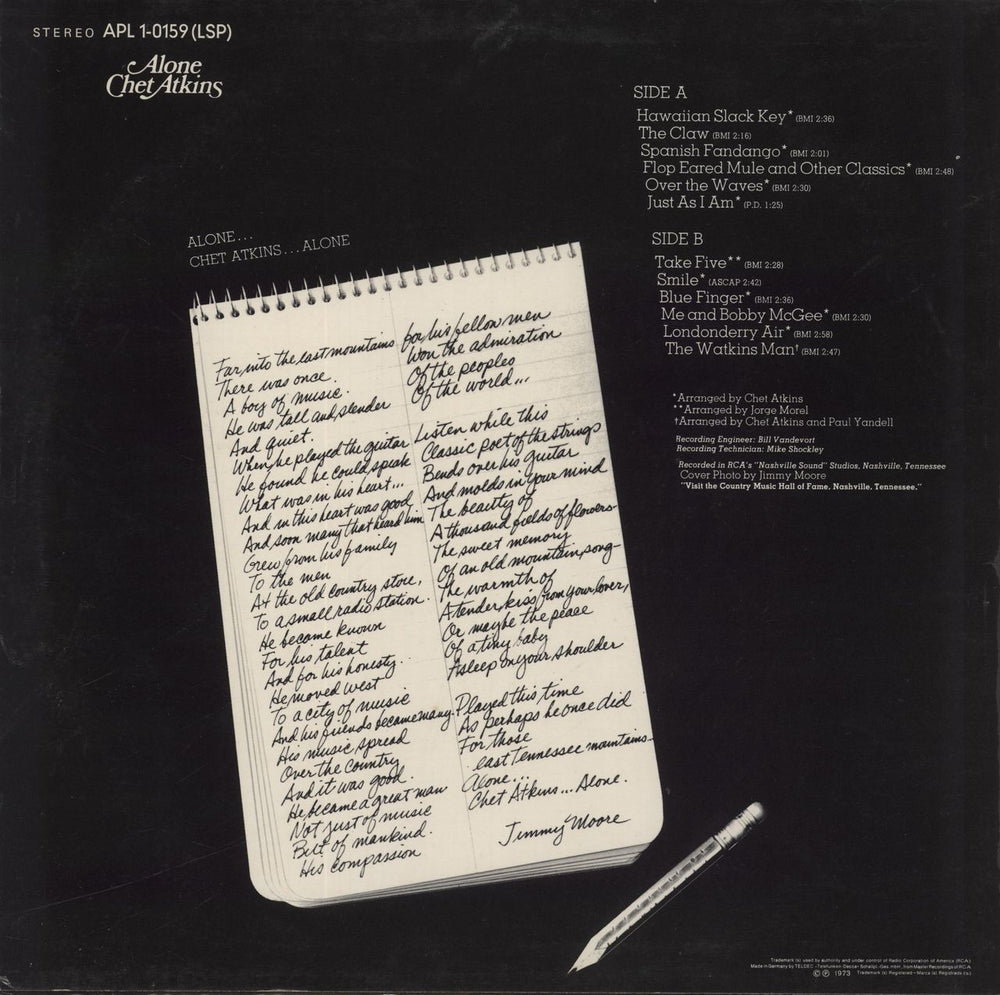 STEREO APL 1-0159 (LSP)
Alone
Chet Atkins
SIDE A
Hawaiian Slack Key* (BMI 2:36)
The Claw (BMI 2:16)
Spanish Fandango* (BMI 2:01)
Flop Eared Mule and Other Classics* (BMI 2:48)
Over the Waves* (BMI 2:30)
Just As I Am* (P.D. 1:25)
SIDE B
Take Five** (BMI 2:28)
Smile* (ASCAP 2:42)
Blue Finger* (BMI 2:36)
Me and Bobby McGee* (BMI 2:30)
Londonderry Air* (BMI 2:58)
The Watkins Man† (BMI 2:47)
*Arranged by Chet Atkins
**Arranged by Jorge Morel
†Arranged by Chet Atkins and Paul Yandell
Recording Engineer: Bill Vandevort
Recording Technician: Mike Shockley
Recorded in RCA's "Nashville Sound" Studios, Nashville, Tennessee
Cover Photo by Jimmy Moore
"Visit the Country Music Hall of Fame, Nashville, Tennessee."
ALONE...
CHET ATKINS...ALONE
Far into the east mountains
There was once.
A boy of music.
He was tall and slender
And quiet.
When he played the guitar
He found he could speak
What was in his heart...
And in this heart was good
And soon many that heard him
Grew from his family
To the men
At the old country store,
To a small radio station.
He became known
For his talent
And for his honesty.
He moved west
To a city of music
And his friends became many.
His music spread
Over the country
And it was good.
He became a great man
Not just of music
But of mankind.
His compassion
for his fellow men
Won the admiration
Of the peoples
Of the world...
Listen while this
Classic poet of the strings
Bends over his guitar
And molds in your mind
The beautity of
A thousand fields of flowers
The sweet memory
Of an old mountain song
The warmth of
A tender kiss from your lover,
Or maybe the peace
Of a tiny baby
Asleep on your shoulder
Played this time
As perhaps he once did
For those
east Tennessee mountains
Alone...
Chet Atkins... Alone.
Jimmy Moore
Trademark (s) used by authority and under control of Radio Corporation of America (RCA)
Made in Germany by TELDEC »Telefunken-Decca« Schallpl.-Ges. mbH., from Master Recordings of RCA
© ℗ 1973 Trademark (s) Registered – Marca (s) Registrada (s)